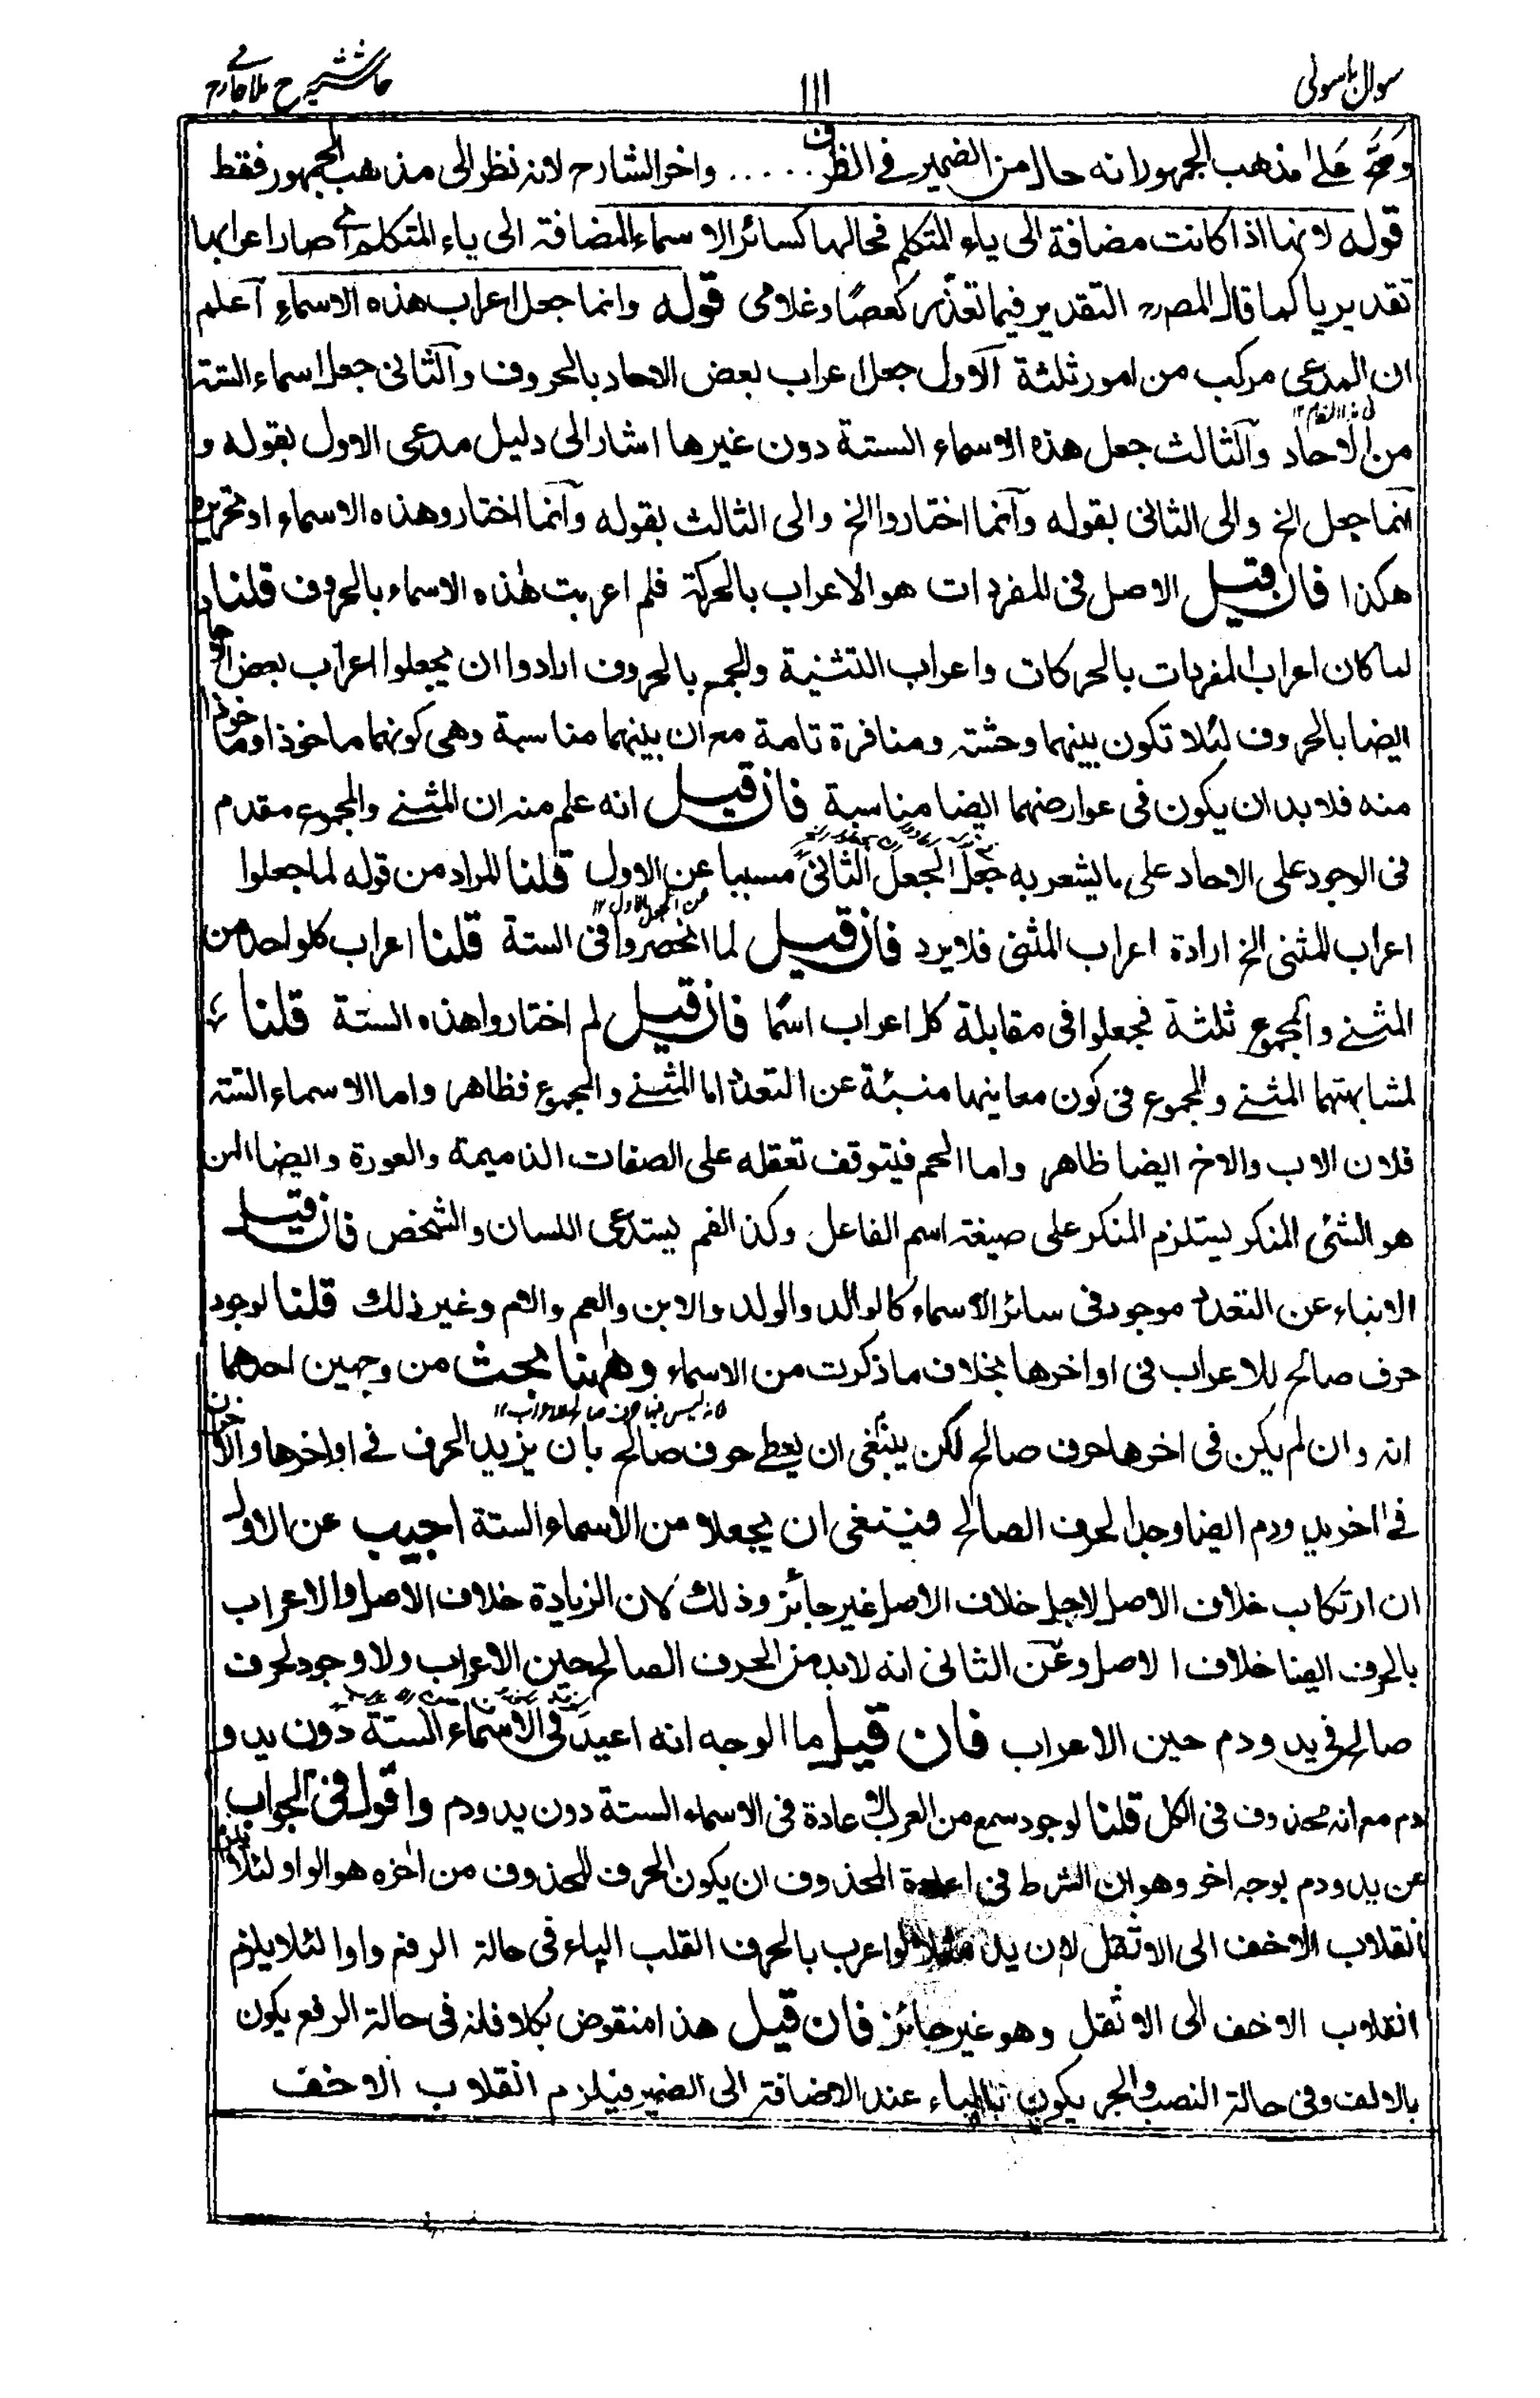 سوال باسولی
١١١
حاشیہ ح ملا جامی رح
وصح على مذهب الجمهور لانه حال من الضمير فى الظرف ..... واخر الشارح لانه نظر الى مذهب الجمهور فقط
قوله لانها اذا كانت مضافة الى ياء المتكلم فحالها كسائر الاسماء المضافة الى ياء المتكلم اى صار اعرابها
تقديريا كما قال المصرح التقدير فيما تعذر كعصًا وغلامى قوله وانما جعل اعراب هذه الاسماء اعلم
ان المدعى مركب من امور ثلثة الاول جعل اعراب بعض الاحاد بالحروف والثانى جعل اسماء الستة
من الاحاد والثالث جعل هذه الاسماء الستة دون غيرها اشار الى دليل مدعى الاول بقوله و
انما جعل الخ والى الثانى بقوله وانما اختاروا الخ والى الثالث بقوله وانما اختاروهذه الاسماء او تحريره
هكذا فان قيل الاصل فى المفردات هو الاعراب بالحركة فلم اعربت هذه الاسماء بالحروف قلنا
لما كان اعراب المفردات بالحركات واعراب التثنية والجمع بالحروف ارادوا ان يجعلوا اعراب بعض الاحاد
ايضا بالحروف لئلا تكون بينهما وحشة ومنافرة تامة مع ان بينهما مناسبة وهى كونهما ماخوذا وماخوذا
منه فلا بد ان يكون فى عوارضهما ايضا مناسبة فان قيل انه علم منه ان المثنے والمجموع مقدم
فى الوجود على الاحاد على ما يشعر به جعل الجعل الثانى مسببا عن الاول قلنا المراد من قوله لما جعلوا
عن الجعل الاول ١٢
اعراب المثنى الخ ارادة اعراب المثنى فلا يرد فان قيل لما انحصروا فى الستة قلنا اعراب كلواحد من
المثنے والمجموع ثلثة فجعلوا فى مقابلة كل اعراب اسمًا فان قيل لم اختاروا هذه الستة قلنا
لمشابهتها المثنے والمجموع فى كون معانيها منبئة عن التعدد اما المثنے والمجموع فظاهر واما الاسماء الستة
فلان الاب والاخ ايضا ظاهر واما الحم فيتوقف تعقله على الصفات الذميمة والعورة وايضا الهن
هو الشئ المنكر يستلزم المنكر على صيغة اسم الفاعل وكذ الفم يستدعى اللسان والشخص فان قيل
الانباء عن التعدد موجود فى سائر الاسماء كالوالد والولد والابن والعم والام وغير ذلك قلنا لوجود
حرف صالح للاعراب فى اواخرها بخلاف ما ذكرت من الاسماء وههنا بحث من وجهين احدهما
لانه ليس فيها حرف صالح للاعراب ١٢
انه وان لم يكن فى اخرها حرف صالح لكن ينبغى ان يعطے حرف صالح بان يزيد الحرف فے اواخرها والاخران
فے اخر يد ودم ايضا وجد الحرف الصالح فينبغى ان يجعلا من الاسماء الستة اجيب عن الاول
ان ارتكاب خلاف الاصل لاجل خلاف الاصل غير جائز وذلك لان الزيادة خلاف الاصل والاعراب
بالحرف ايضا خلاف الاصل وعن الثانى انه لابد من الحرف الصالح حين الاعراب ولا وجود لحرف
صالح فى يد ودم حين الاعراب فان قيل ما الوجه انه اعيد فى الاسماء الستة دون يد و
دم مع انه محذوف فى الكل قلنا لوجود سمع من العرب الاعادة فى الاسماء الستة دون يد ودم واقول فى الجواب
عن يد ودم بوجه اخر وهو ان الشرط فى اعادة المحذوف ان يكون الحرف المحذوف من اخره هو الواو لئلا يلزم
انقلاب الاخف الى الاثقل لان يد مثلا لو اعرب بالحرف القلب الياء فى حالة الرفع واوا لئلا يلزم
انقلاب الاخف الى الاثقل وهو غير جائز فان قيل هذا منقوض بكلا فانه فى حالة الرفع يكون
بالالف وفى حالة النصب والجر يكون بالياء عند الاضافة الى الضمير فيلزم انقلاب الاخف